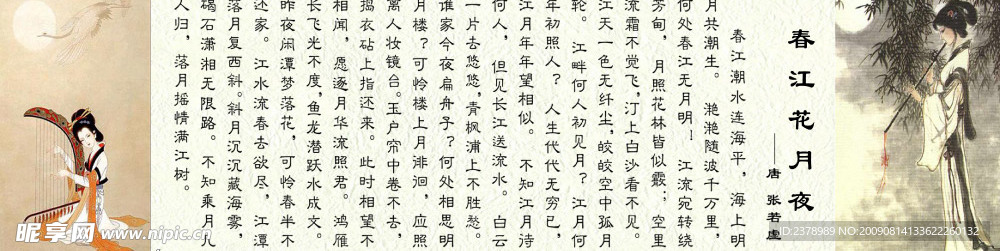 春江花月夜
——唐 张若虚
春江潮水连海平，海上明
月共潮生。 滟滟随波千万里，
何处春江无月明！ 江流宛转绕
芳甸，月照花林皆似霰；空里
流霜不觉飞，汀上白沙看不见。
江天一色无纤尘，皎皎空中孤月
轮。 江畔何人初见月？江月何
年初照人？ 人生代代无穷已，
江月年年望相似。 不知江月诗
何人， 但见长江送流水。 白云
一片去悠悠，青枫浦上不胜愁。
谁家今夜扁舟子？何处相思明
月楼？可怜楼上月徘徊，应照
离人妆镜台。玉户帘中卷不去，
捣衣砧上指还来。此时相望不
相闻，愿逐月华流照君。 鸿雁
长飞光不度，鱼龙潜跃水成文。
昨夜闲潭梦落花，可怜春半不
还家。 江水流春去欲尽，江潭
落月复西斜。斜月沉沉藏海雾，
碣石潇湘无限路。 不知乘月几
人归， 落月摇情满江树。
昵享网 www.nipic.cn
ID:2378989 NO:20090814133622260132